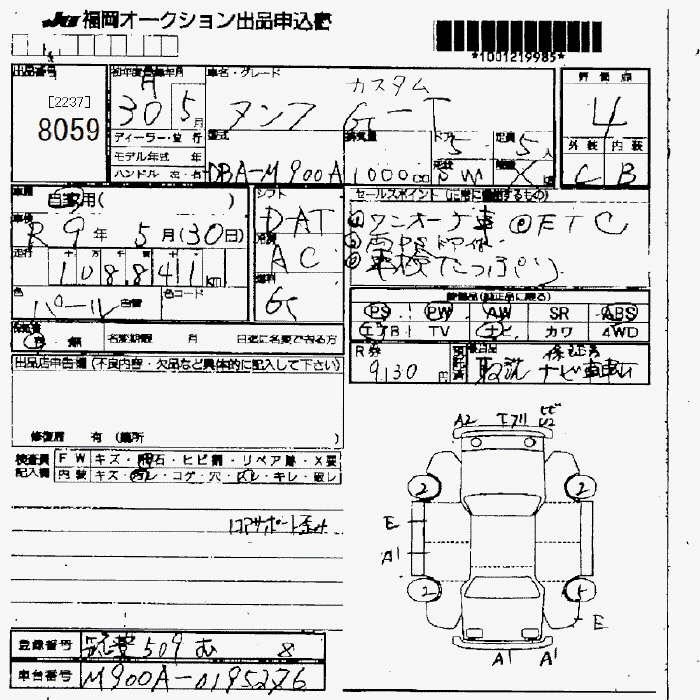 福岡オークション出品申込書
*1001219985*
出品番号
[2237]
8059
初年度登録年月
H
30 5月
車名・グレード
カスタム
タンク G-T
評価点
4
外装 内装
C B
ディーラー・並行
モデル年式 年
ハンドル 左・右
型式
DBA-M900A
排気量
1000cc
ドア
5
定員
5人
車歴
自家用( )
車検
R 9年 5月(30日)
走行
108841km
色
パール
色コード
シフト
D-AT
冷房
AC
燃料
セールスポイント (に常に優出するもの)
①ワンオーナー車 ETC
車検たっぷり
装備品(純正品に限る)
PS PW AW SR ABS
エアB TV ナビ カワ 4WD
有 無 名変期限 月 日迄に名変できる方
R券
9130円
取説
保証書
ナビ
出品店申告欄 (不良内容・欠品など具体的に記入して下さい)
修復歴 有 (箇所 )
検査員
記入欄
F W キズ・飛石・ヒビ割・リペア跡・X要
内装 キズ・汚レ・コゲ・穴・スレ・キレ・破レ
コアサポート歪み
A2 エアロ
2 2
E
A1
2
E
A1 A1
登録番号 筑豊 509 む 8
車台番号 M900A-0195276